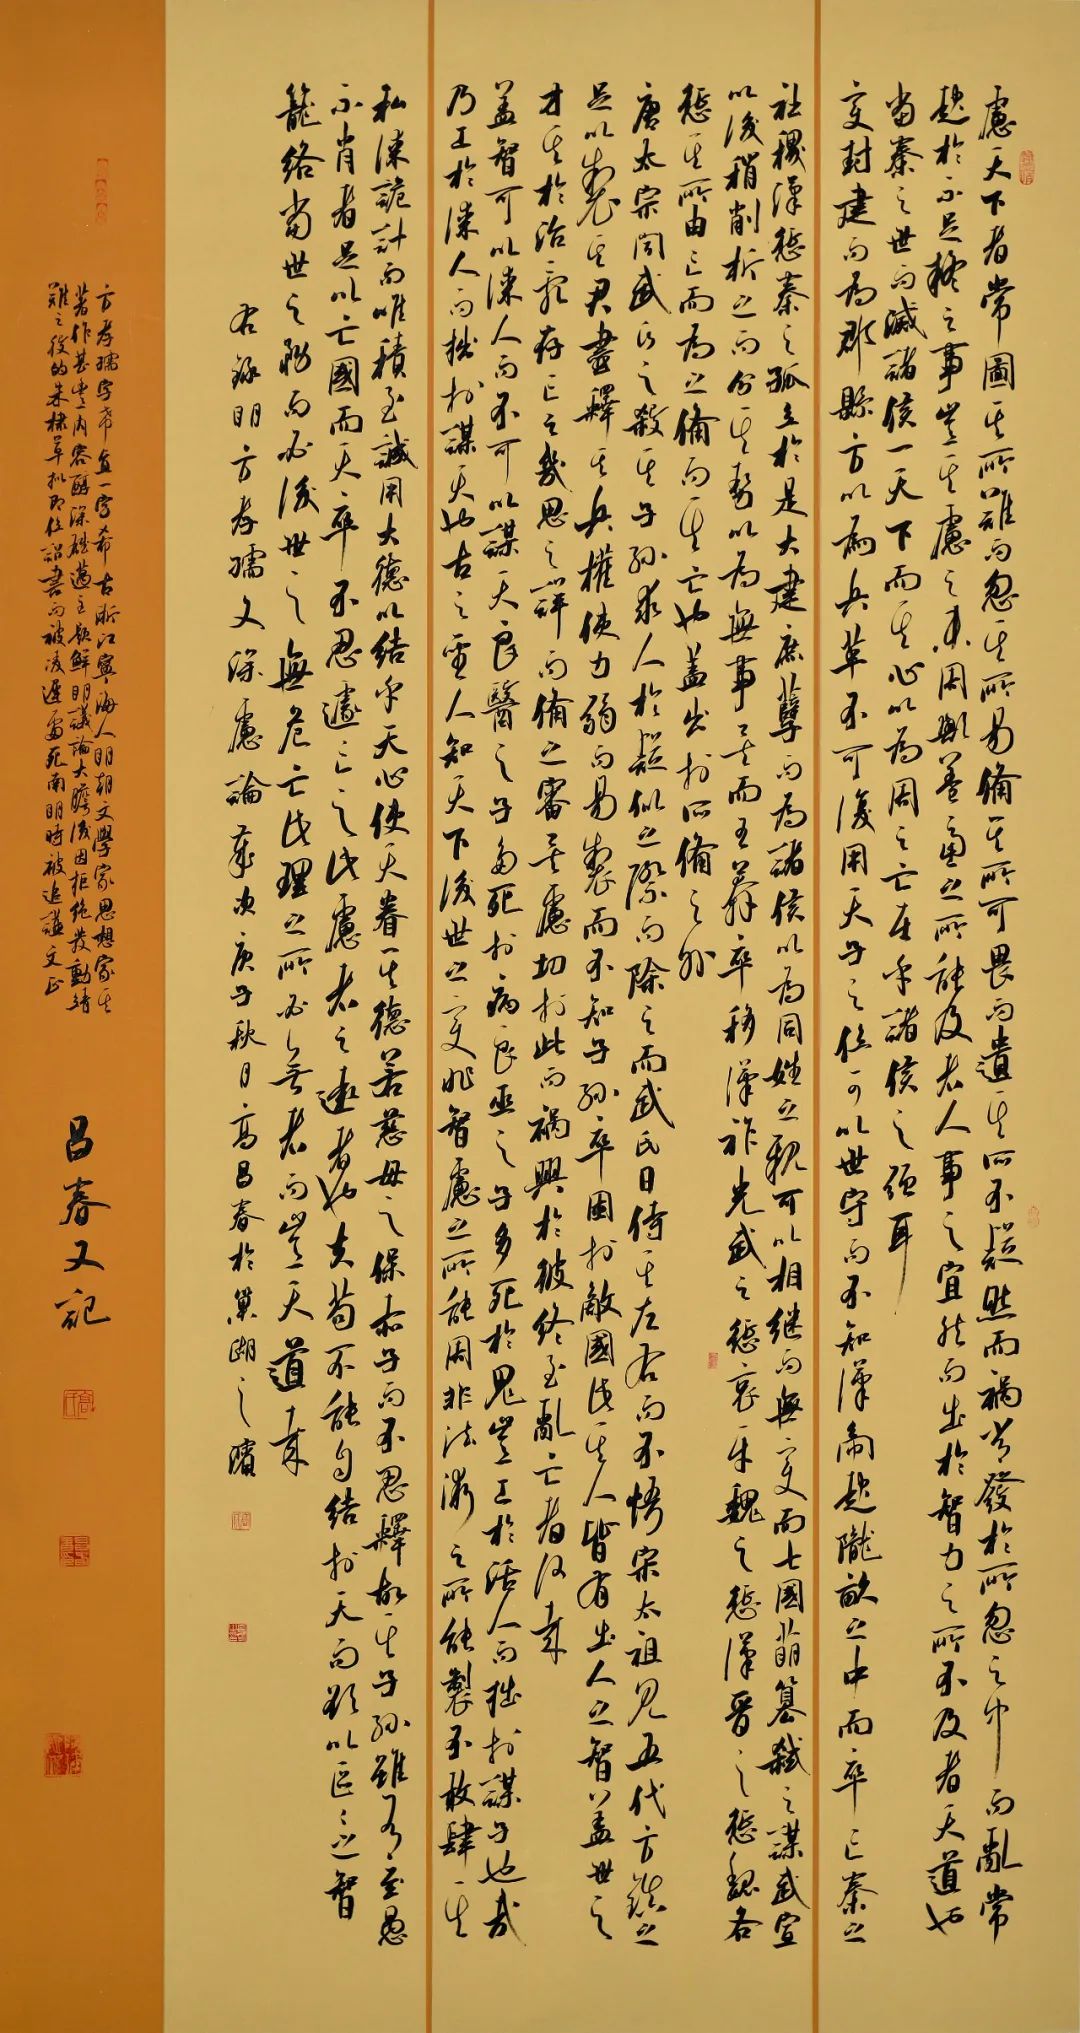 慮天下者常圖其所難而忽其所易備其所可畏而遺其所不疑然而禍常發於所忽之中而亂常
起於不足疑之事豈其慮之未周歟蓋慮之所能及者人事之宜然而出於智力之所不及者天道也
當秦之世而滅諸侯一天下而其心以為周之亡在乎諸侯之強耳
變封建而為郡縣方以為兵革不可復用天子之位可以世守而不知漢帝起隴畝之中而卒亡秦之
社稷漢懲秦之孤立於是大建庶孽而為諸侯以為同姓之親可以相繼而無變而七國萌篡弒之謀武宣
以後稍削析之而分其勢以為無事矣而王莽卒移漢祚光武之懲哀平魏之懲漢晉之懲魏各
懲其所由亡而為之備而其亡也蓋出於所備之外
唐太宗聞武氏之殺其子孫求人於疑似之際而除之而武氏日侍其左右而不悟宋太祖見五代方鎮之
足以制其君盡釋其兵權使力弱而易制而不知子孫卒困於敵國此其人皆有出人之智蓋世之
才其於治亂存亡之幾思之詳而備之審矣慮切於此而禍興於彼終至亂亡者何哉
蓋智可以謀人而不可以謀天良醫之子多死於病良巫之子多死於鬼豈工於活人而拙於謀子也哉
乃工於謀人而拙於謀天也古之聖人知天下後世之變非智慮之所能周非法術之所能製不敢肆其
私謀詭計而唯積至誠用大德以結乎天心使天眷其德若慈母之保赤子而不忍釋故其子孫雖有至愚
不肖者足以亡國而天卒不忍遽亡之此慮之遠者也夫苟不能自結於天而欲以區區之智
籠絡當世之務而必後世之無危亡此理之所必無者而豈天道哉
右錄明方孝孺文深慮論 歲次庚子秋月高昌春於巢湖之濱
方孝孺字希直一字希古浙江寧海人明朝文學家思想家其
著作甚豐內容醇深雄邁主題鮮明議論大膽後因拒絕發動靖
難之役的朱棣草擬即位詔書而被凌遲處死南明時被追諡文正
昌春又記